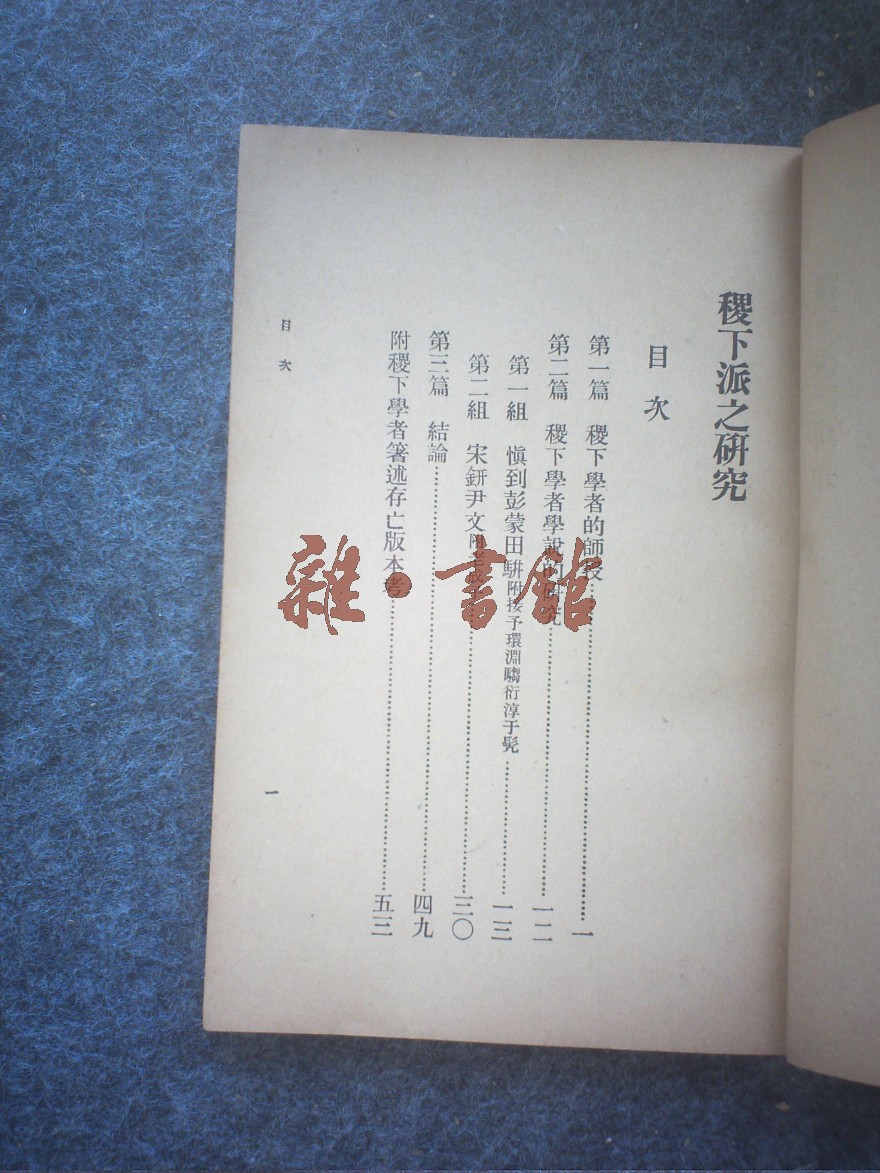 稷下派之硏究
目次
第一篇 稷下學者的師設……一
第二篇 稷下學者學說的硏究……一二
第一組 愼到彭蒙田騈附接予環淵騶衍淳于髠……一三
第二組 宋鈃尹文附……三〇
第三篇 結論……四九
附稷下學者箸述存亡版本考……五三
目次
一
雜·書館